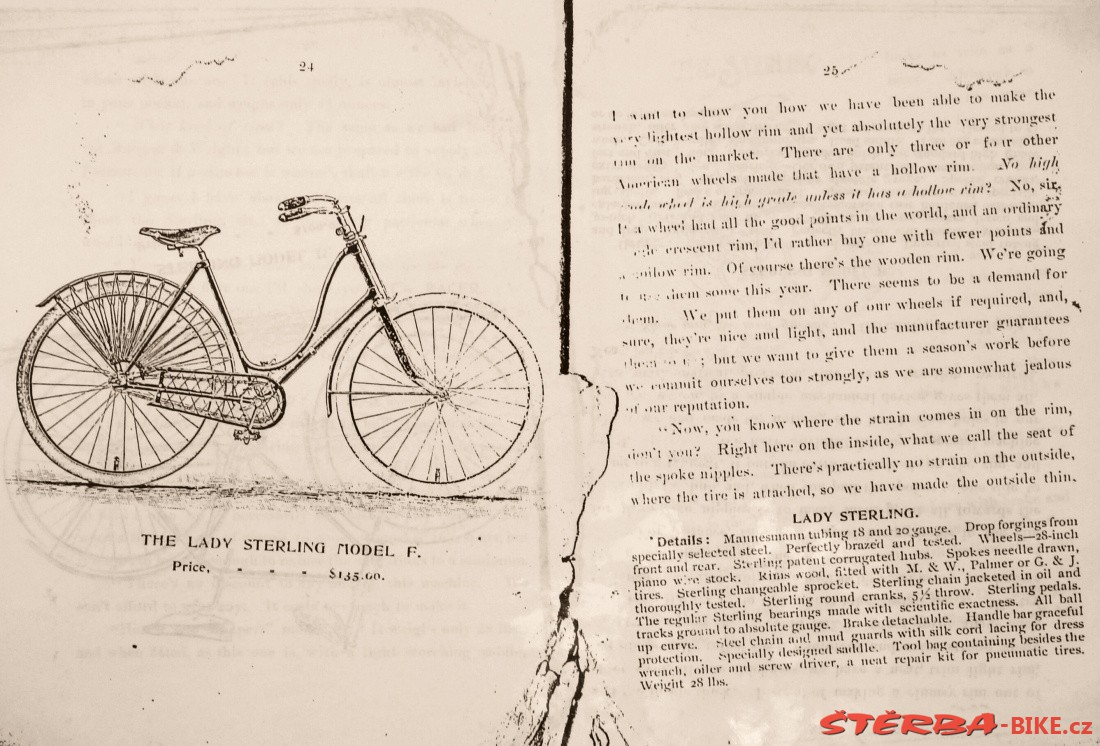 24
THE LADY STERLING MODEL F.
Price, - - - $135.00.
25
I want to show you how we have been able to make the
very lightest hollow rim and yet absolutely the very strongest
rim on the market. There are only three or four other
American wheels made that have a hollow rim. No high
grade wheel is high grade unless it has a hollow rim? No, sir,
If a wheel had all the good points in the world, and an ordinary
crescent rim, I'd rather buy one with fewer points and
a hollow rim. Of course there's the wooden rim. We're going
to use them some this year. There seems to be a demand for
them. We put them on any of our wheels if required, and,
sure, they're nice and light, and the manufacturer guarantees
them ; but we want to give them a season's work before
we commit ourselves too strongly, as we are somewhat jealous
of our reputation.
"Now, you know where the strain comes in on the rim,
don't you? Right here on the inside, what we call the seat of
the spoke nipples. There's practically no strain on the outside,
where the tire is attached, so we have made the outside thin,
LADY STERLING.
Details: Mannesmann tubing 18 and 20 gauge. Drop forgings from
specially selected steel. Perfectly brazed and tested. Wheels—28-inch
front and rear. Sterling patent corrugated hubs. Spokes needle drawn,
piano wire stock. Rims wood, fitted with M. & W., Palmer or G. & J.
tires. Sterling changeable sprocket. Sterling chain jacketed in oil and
thoroughly tested. Sterling round cranks, 5½ throw. Sterling pedals.
The regular Sterling bearings made with scientific exactness. All ball
tracks ground to absolute gauge. Brake detachable. Handle bar graceful
up curve. Steel chain and mud guards with silk cord lacing for dress
protection. Specially designed saddle. Tool bag containing besides the
wrench, oiler and screw driver, a neat repair kit for pneumatic tires.
Weight 28 lbs.
ŠTĚRBA-BIKE.cz